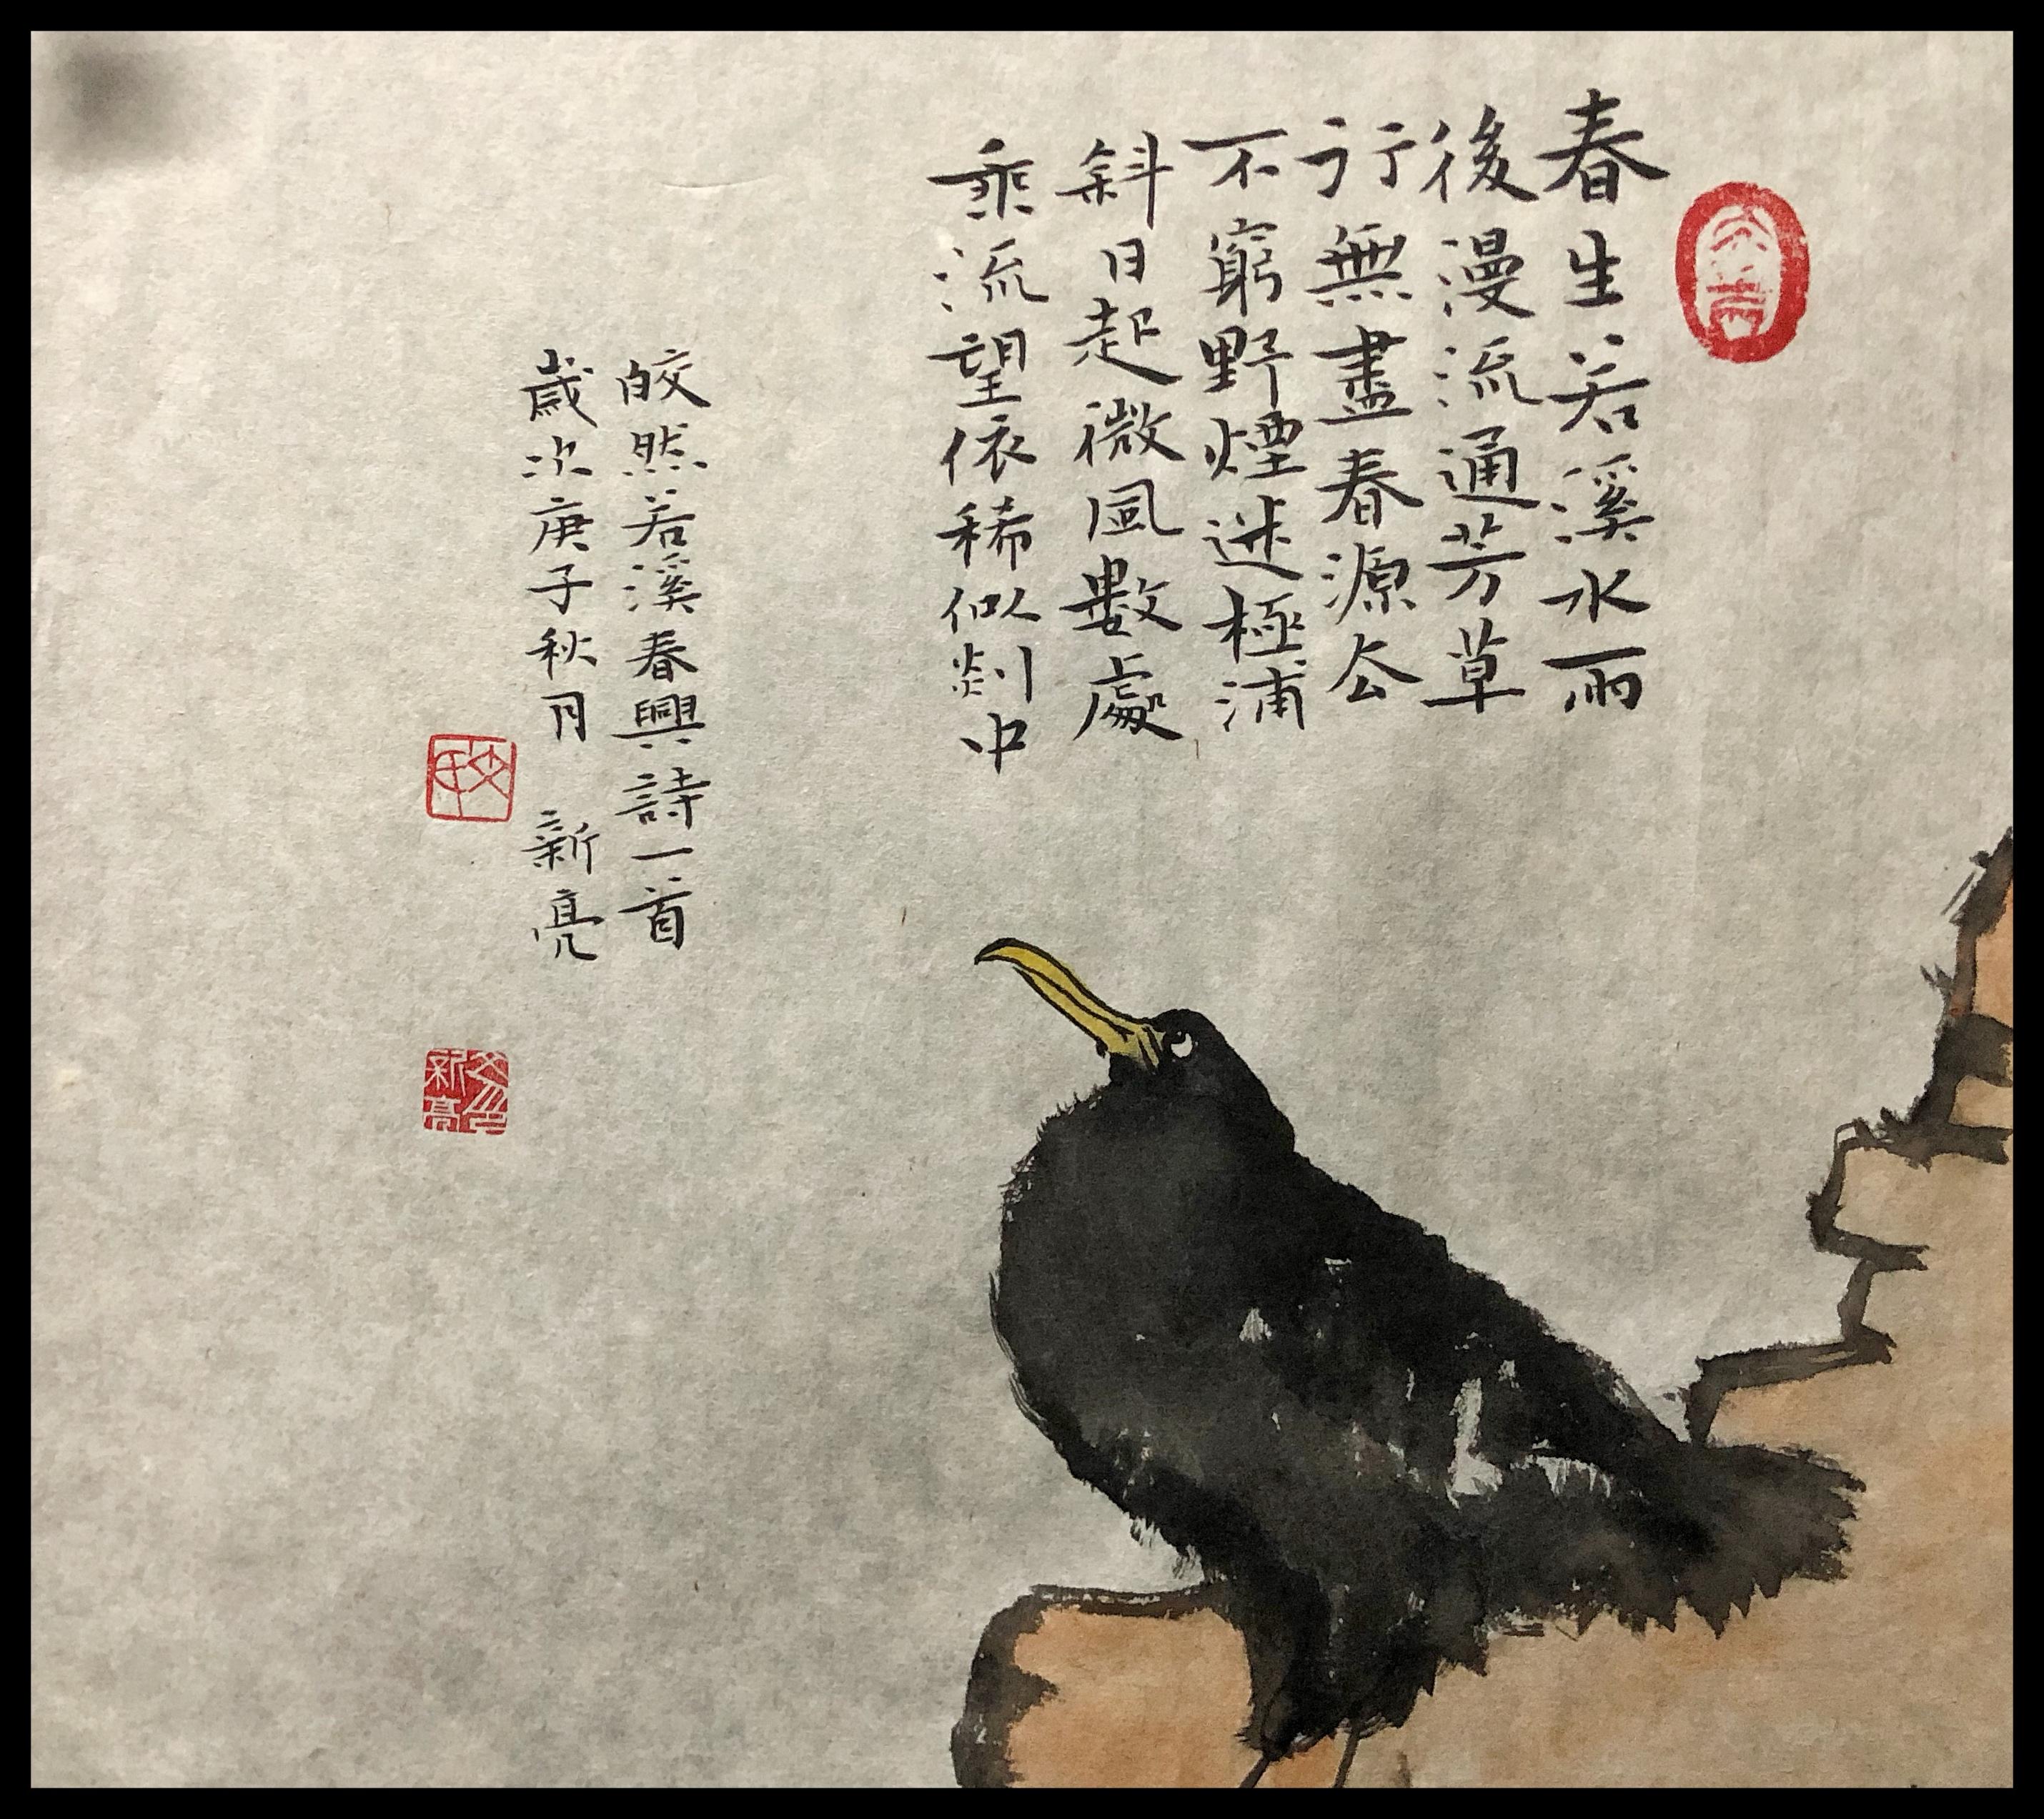 春生若溪水雨
後漫流通芳草
行無盡春源去
不窮野煙迷極浦
斜日起微風數處
乘流望依稀似剡中
皎然若溪春興詩一首
歲次庚子秋月 新亮
新亮